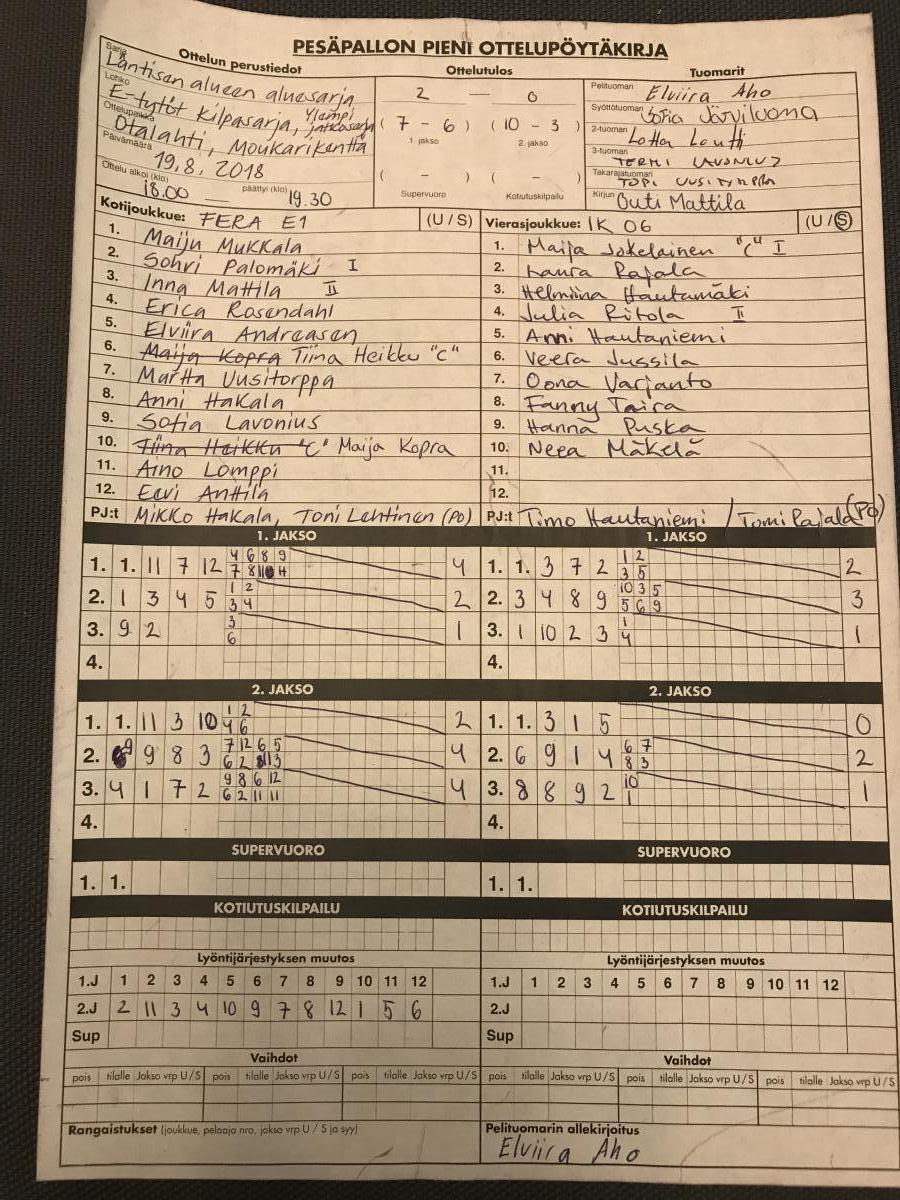 PESÄPALLON PIENI OTTELUPÖYTÄKIRJA
Ottelun perustiedot
Sarja Läntisen alueen aluesarja
Lohko E-tytöt Kilpasarja, Ylempi jatkosarja
Ottelupaikka Otalahti, Moukarikenttä
Päivämäärä 19.8.2018
Ottelu alkoi (klo) 18.00 — päättyi (klo) 19.30
Ottelutulos
2 — 0
( 7 - 6 ) ( 10 - 3 )
1. jakso 2. jakso
( - ) ( - )
Supervuoro Kotiutuskilpailu
Tuomarit
Pelituomari Elviira Aho
Syöttötuomari Sofia Järviluoma
2-tuomari Lotta
3-tuomari
Takarajatuomari TOPI UUSITORPPA
Kirjuri Outi Mattila
Kotijoukkue: FERA E1 (U / S)
1. Maiju Mukkala
2. Sohvi Palomäki I
3. Inna Mattila II
4. Erica Rosendahl
5. Elviira Andreasen
6. Maija Kopra Tiina Heikku "C"
7. Martta Uusitorppa
8. Anni Hakala
9. Sofia Lavonius
10. Tiina Heikku "C" Maija Kopra
11. Aino Lomppi
12. Eevi Anttila
PJ:t Mikko Hakala, Toni Lehtinen (PO)
Vierasjoukkue: IK 06 (U / S)
1. Maija Jokelainen "C" I
2. Laura Rajala
3. Helmiina Hautamäki
4. Julia Ritola II
5. Anni Hautaniemi
6. Veera Jussila
7. Oona Varjanto
8. Fanny Taira
9. Hanna Puska
10. Neea Mäkelä
11.
12.
PJ:t Timo Hautaniemi / Tomi Rajala (PO)
1. JAKSO
1. 1. 11 7 12 4
4 6 8 9
7 8 11
2. 1 3 4 5 2
1 2
3 4
3. 9 2 1
3
6
4.
1. JAKSO
1. 1. 3 7 2 2
1 2
3 5
2. 3 4 8 9 3
10 3 5
5 6 9
3. 1 10 2 3 1
1
4
4.
2. JAKSO
1. 1. 11 3 10 2
1 2
4 6
2. 9 9 8 3 4
7 12 6 5
6 2 13
3. 4 1 7 2 4
9 8 6 12
6 2 11 11
4.
2. JAKSO
1. 1. 3 1 5 0
2. 6 9 1 4 2
6 7
8 3
3. 8 8 9 2 1
10
1
4.
SUPERVUORO
1. 1.
SUPERVUORO
1. 1.
KOTIUTUSKILPAILU
KOTIUTUSKILPAILU
Lyöntijärjestyksen muutos
1.J 1 2 3 4 5 6 7 8 9 10 11 12
2.J 2 11 3 4 10 9 7 8 12 1 5 6
Sup
Lyöntijärjestyksen muutos
1.J 1 2 3 4 5 6 7 8 9 10 11 12
2.J
Sup
Vaihdot
pois tilalle Jakso vrp U / S pois tilalle Jakso vrp U / S pois tilalle Jakso vrp U / S
Vaihdot
pois tilalle Jakso vrp U / S pois tilalle Jakso vrp U / S pois tilalle Jakso vrp U / S
Rangaistukset (joukkue, pelaaja nro, jakso vrp U / S ja syy)
Pelituomarin allekirjoitus
Elviira Aho